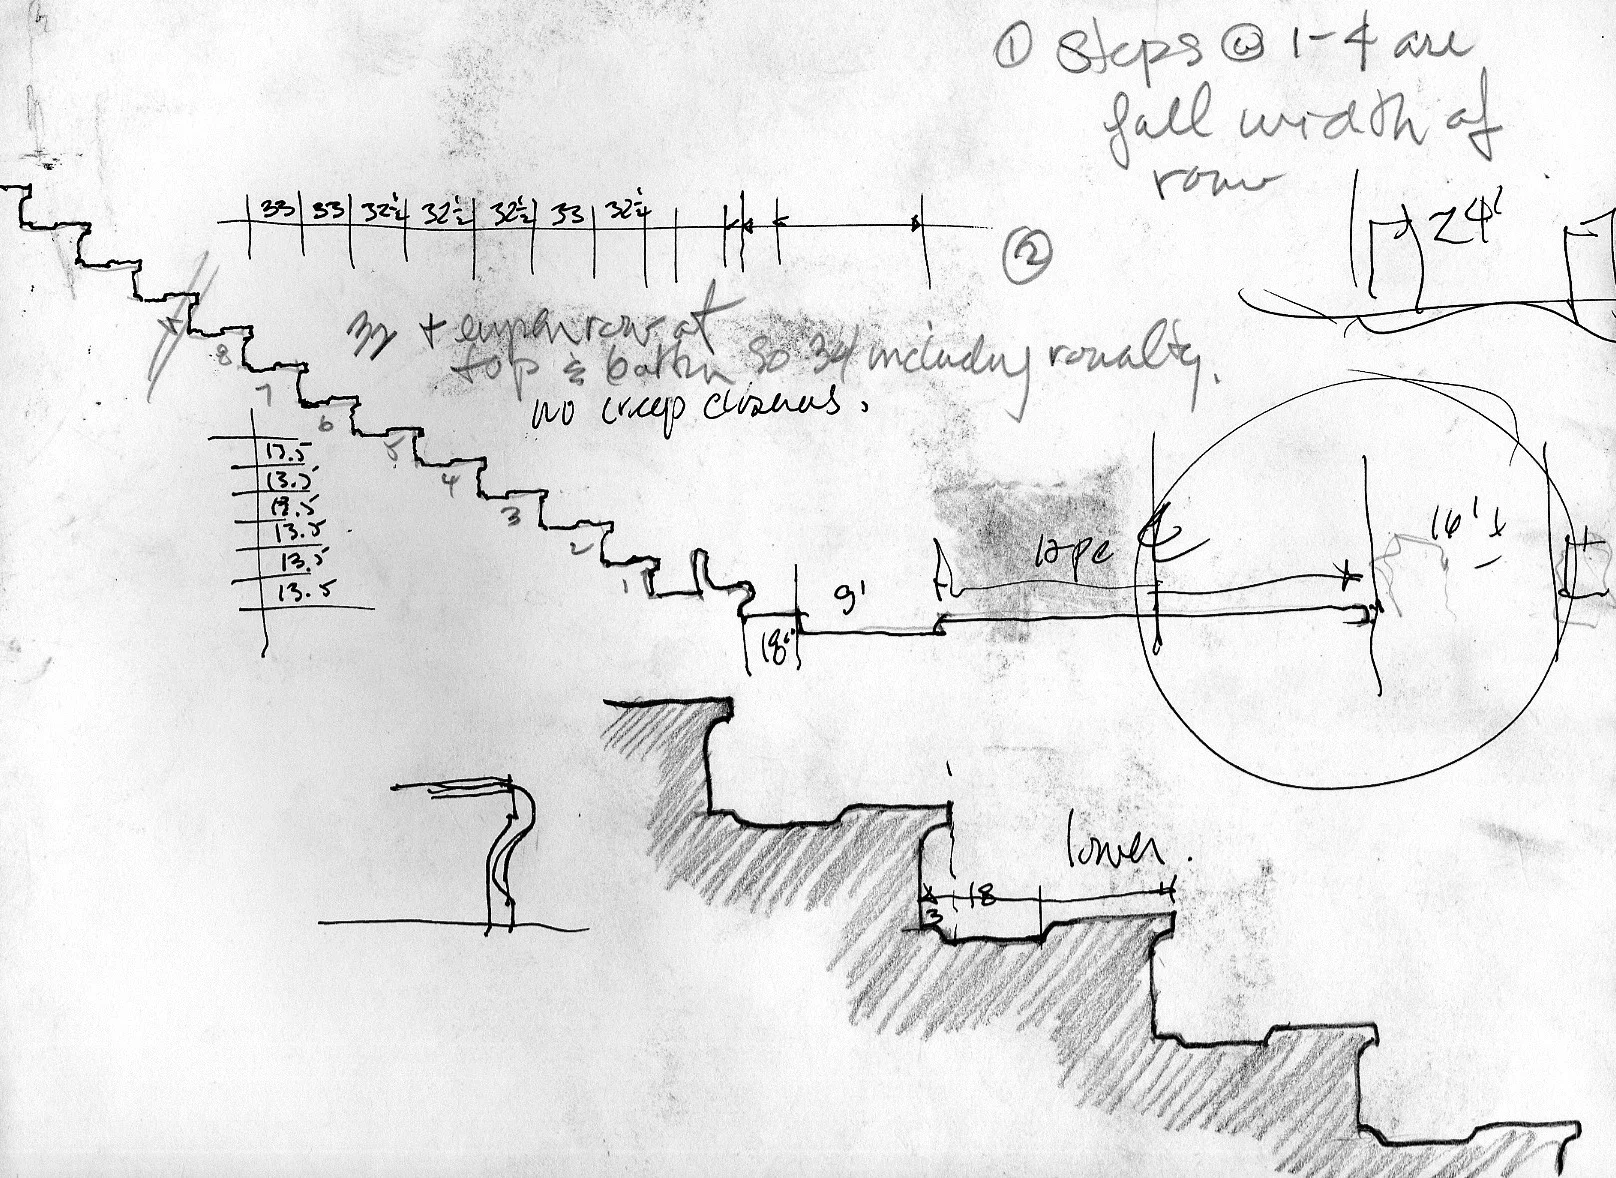 ① Steps @ 1-4 are
full width of
row
24'
33 33 32½ 32½ 32½ 33 32¼
②
+ row at
top & bottom so 34 including royalty.
no creep
8
7
6
5
4
3
2
1
13.5
13.5
13.5
13.5
13.5
13.5
9'
18"
16'
lower.
3 18